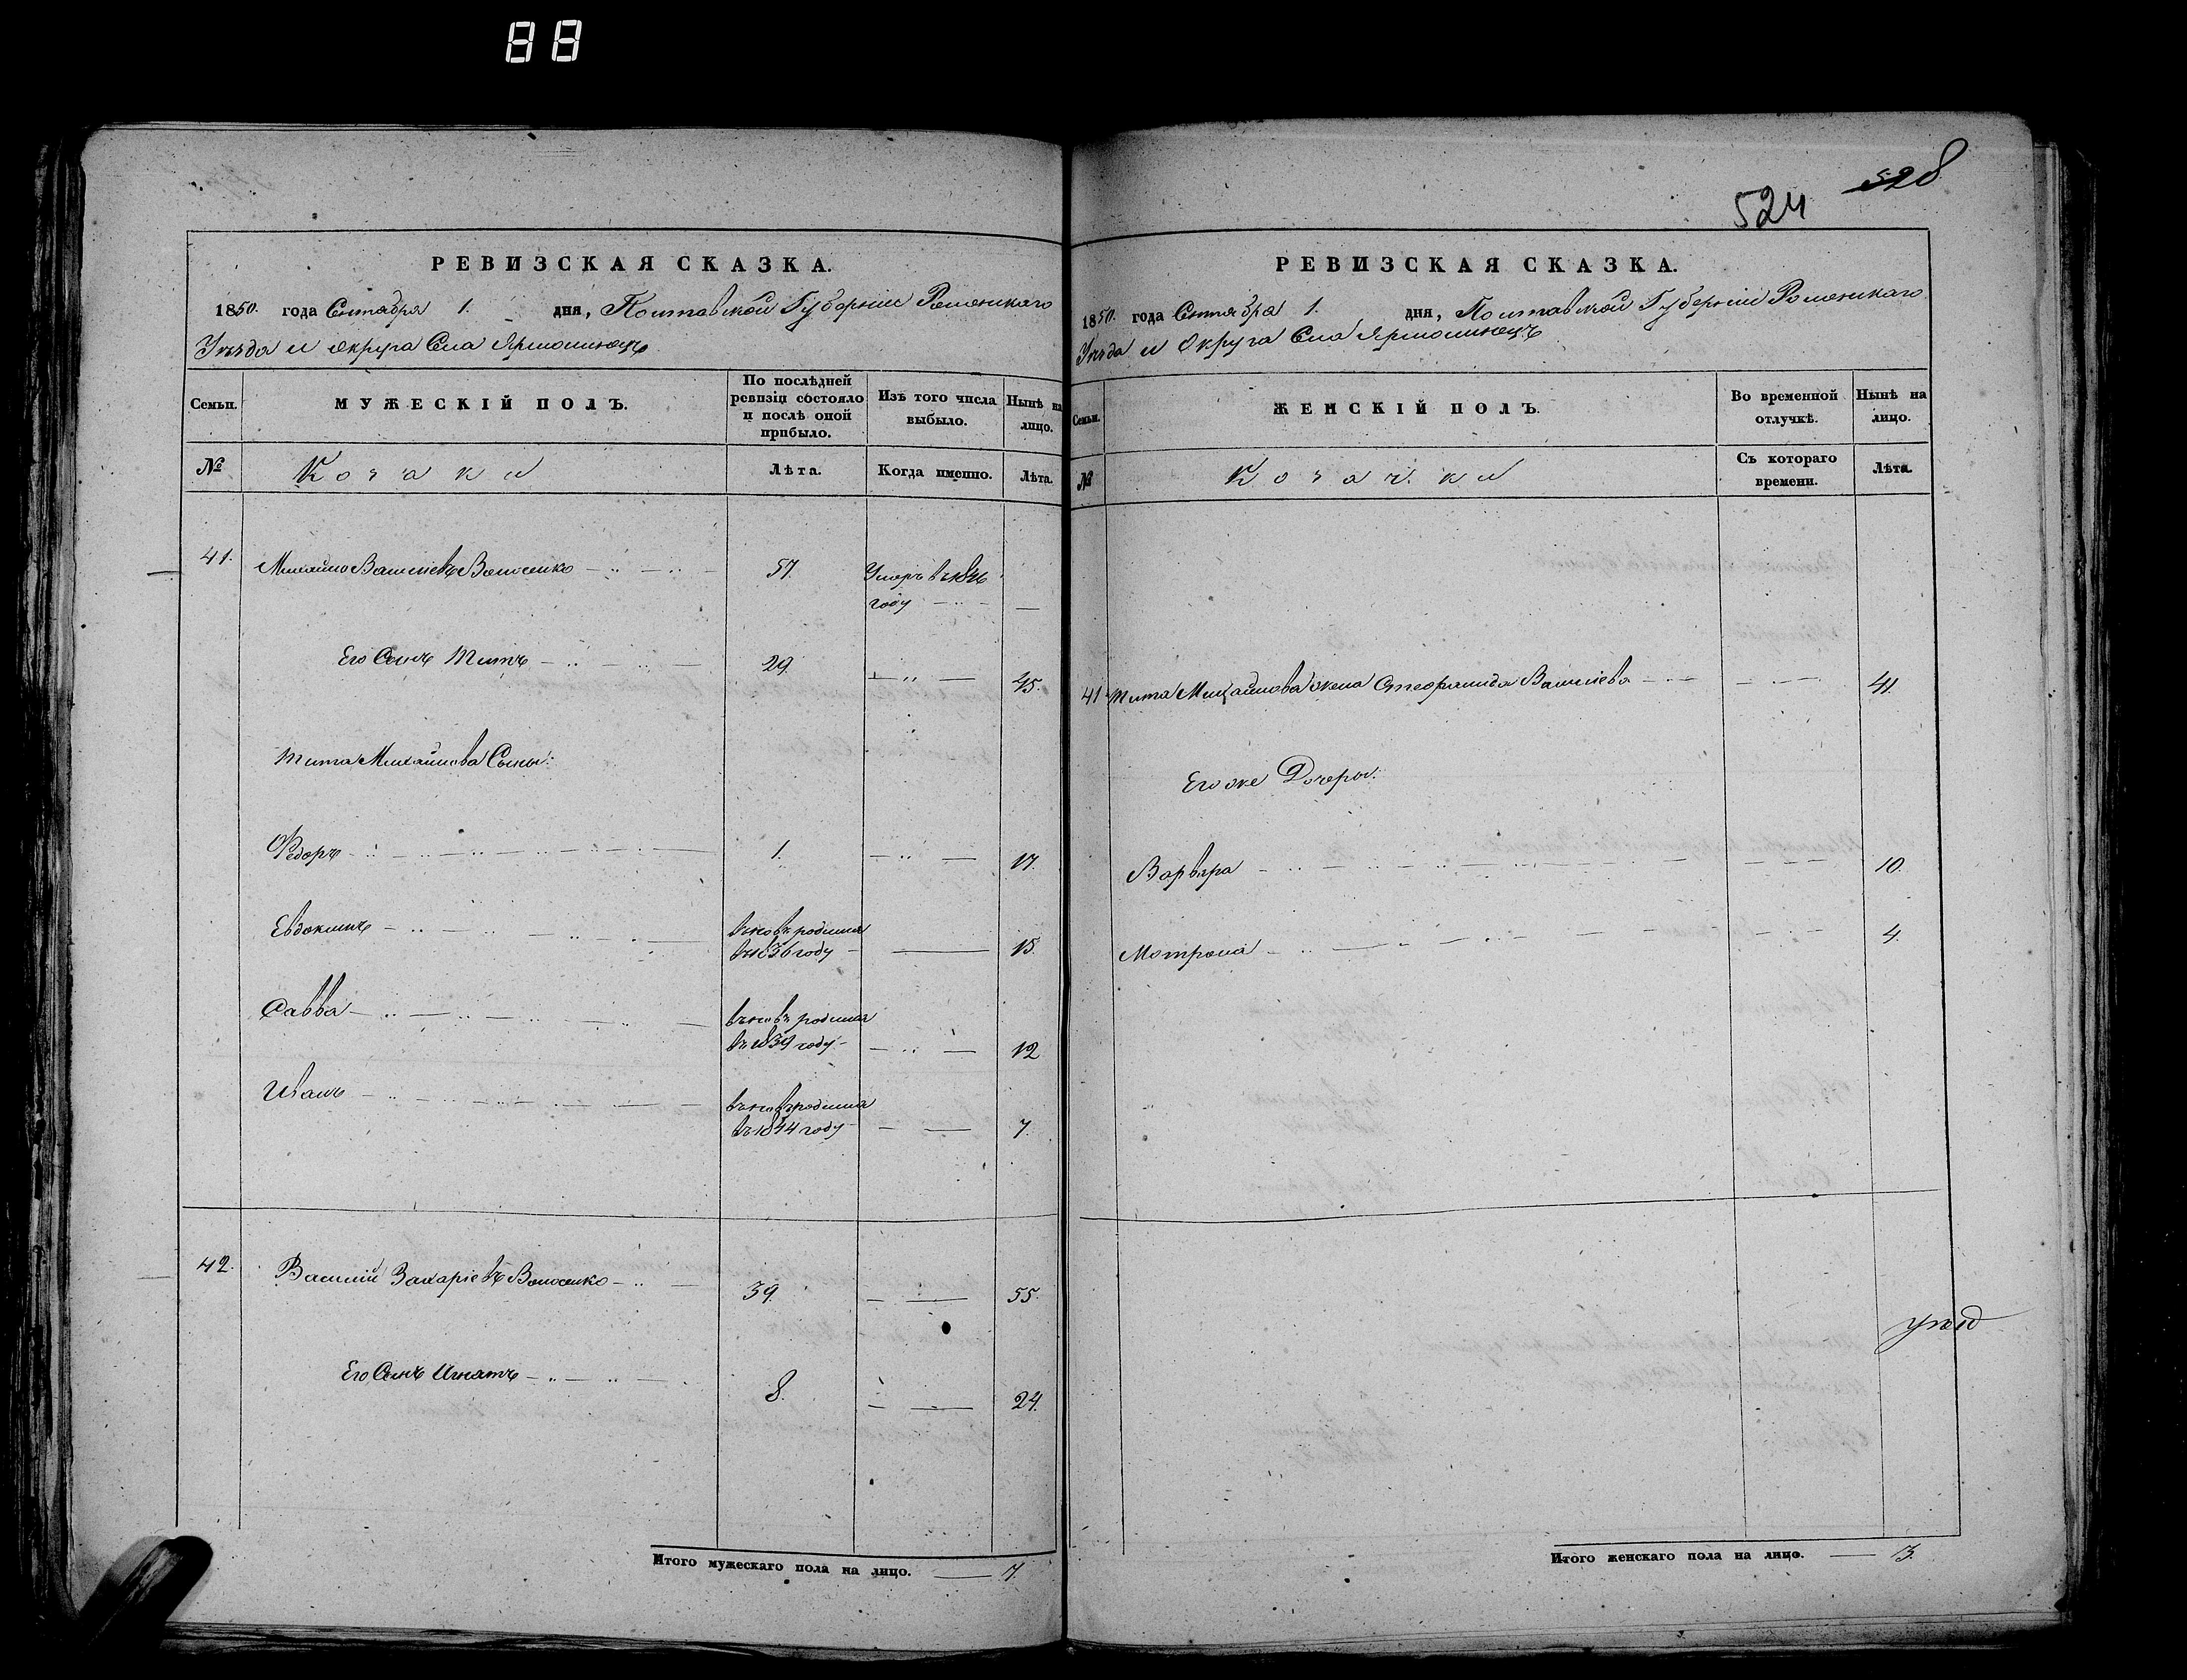 88
РЕВИЗСКАЯ СКАЗКА.
1850. года Сентября 1. дня, Полтавской Губерніи Роменскаго
Уезда и округа Села Ярмолинецъ
Семьи.
МУЖЕСКІЙ ПОЛЪ.
По послѣдней ревизіи состояло и послѣ оной прибыло.
Изъ того числа выбыло.
Нынѣ на лицо.
№
Козаки
Лѣта.
Когда именно.
Лѣта.
41. Михайло Васильевъ Волосенко 57. Умеръ въ
году
Его Сынъ Титъ 29. 45.
Тита Михайлова Сыны:
Федоръ 1. 17.
Евдокимъ вновь родился
въ 1836 году 15.
Савва вновь родился
въ 1839 году 12
Иванъ вновь родился
въ 1844 году 7.
42. Василий Захаріевъ Волосенко 39. 55.
Его Сынъ Игнатъ 8. 24.
Итого мужескаго пола на лицо. 7.
524 528
РЕВИЗСКАЯ СКАЗКА.
1850. года Сентября 1. дня, Полтавской Губерніи Роменскаго
Уезда и Округа Села Ярмолинецъ
Семьи.
ЖЕНСКІЙ ПОЛЪ.
Во временной отлучкѣ.
Нынѣ на лицо.
№
Козачки
Съ котораго времени.
Лѣта.
41 Тита Михайлова жена Стефанида Васильева 41.
Его же Дочеры:
Варвара 10.
Мотрона 4.
Итого женскаго пола на лицо. 3.